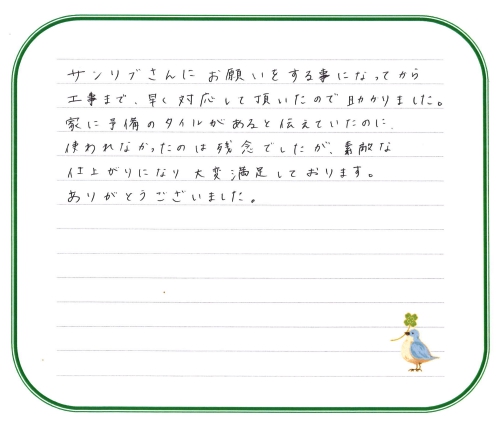 サンリブさんに お願いをする事になってから
工事まで、早く対応して頂いたので助かりました。
家に予備のタイルがあると伝えていたのに、
使われなかったのは残念でしたが、素敵な
仕上がりになり 大変満足しております。
ありがとうございました。